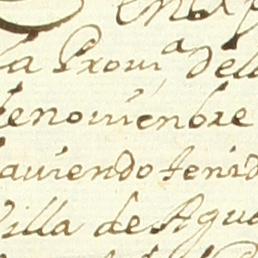 en
la Prouᵃ dela
denouienbre
auiendo tenid
Villa de Agua